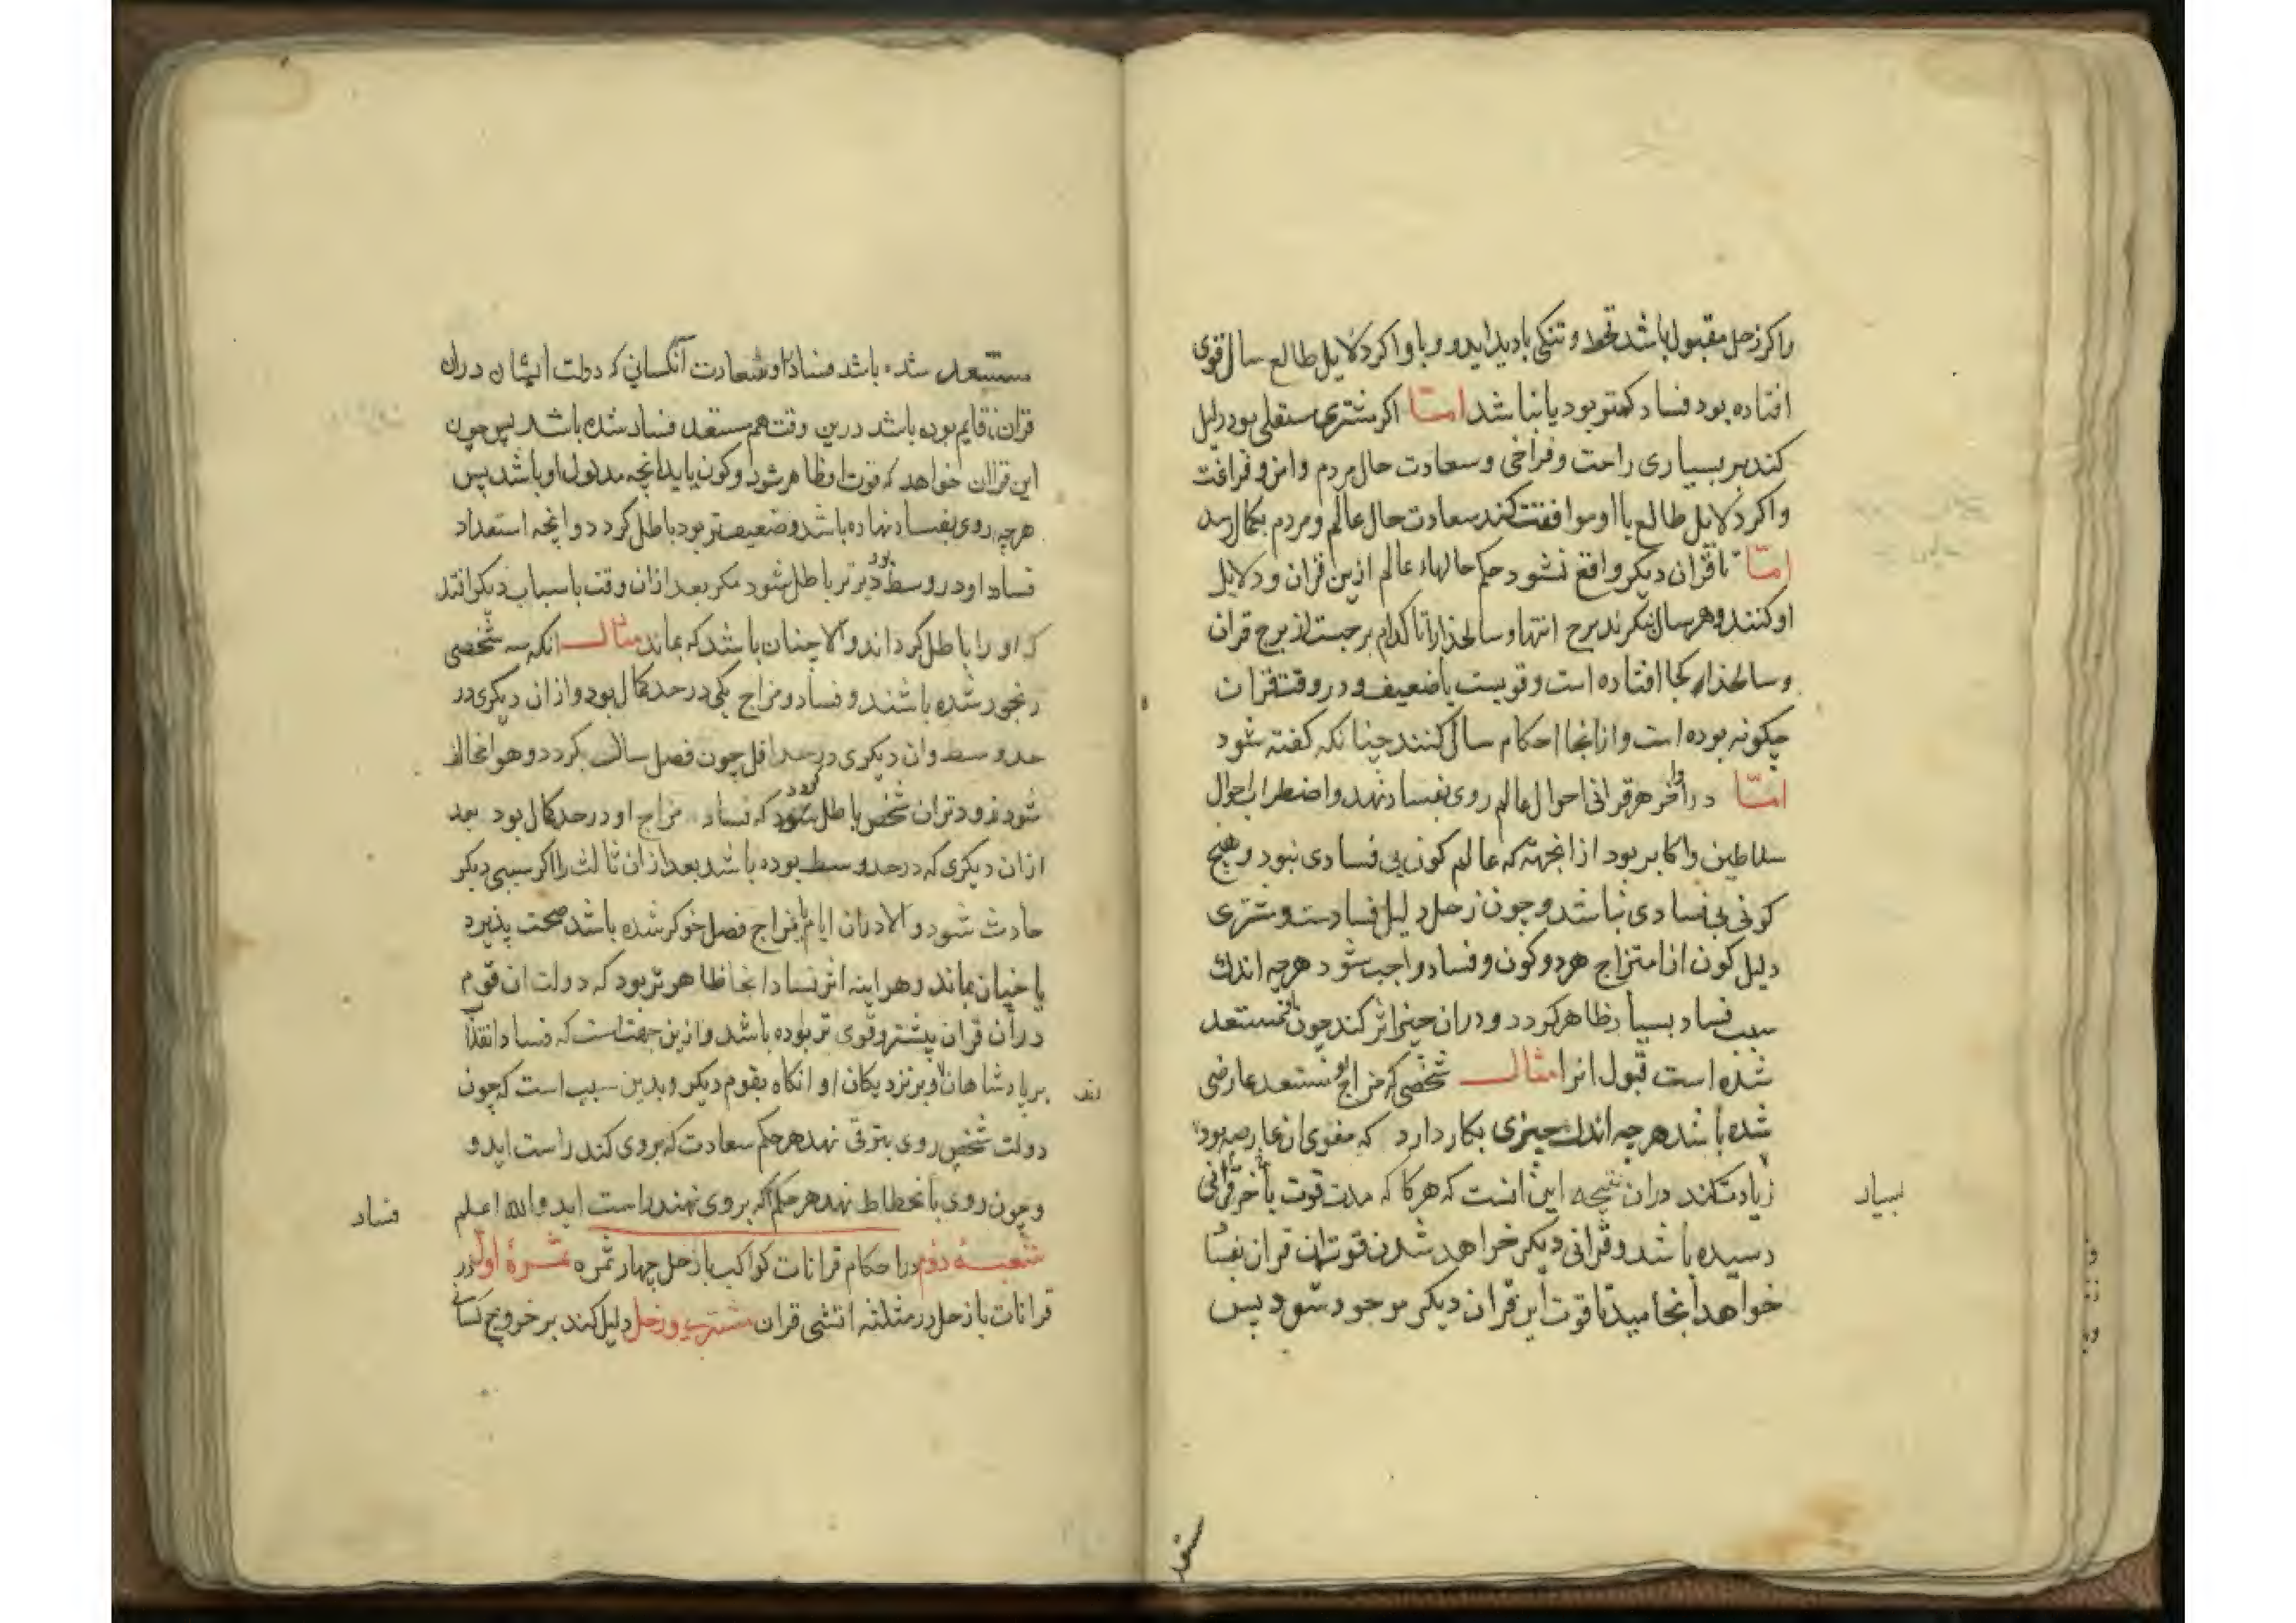 واکر زحل مقبول باشد قحط و تنکی بادید اید و وبا و اکر دلایل طالع سال قوی
افتاده بود فساد کمتر بود یا نباشد امّا اکر مشتری مستعلی بود دلیل
کند بر بسیاری راحت و فراخی و سعادت حال مردم و امن و فراغت
و اکر دلایل طالع با او موافقت کند سعادت حال عالم و مردم بکمال رسد
امّا تا قران دیکر واقع نشود حکم حالهاء عالم ازین قران و دلایل
او کنند و هر سال بنکرند برج انتها و سالخداه را تا کدام برجست از برج قران
و سالخداه کجا افتاده است و قویست یا ضعیف و در وقت قران
چکونه بوده است و ازانجا احکام سال کنند چنانکه کفته شود
امّا در اواخر هر قرانی احوال عالم روی بفساد نهد و اضطراب احوال
سلاطین و اکابر بود از انجهة که عالم کون بی فسادی نبود و هیچ
کونی بی فسادی نباشد و چون زحل دلیل فسادست و مشتری
دلیل کون از امتزاج هر دو کون و فساد واجب شود هرچه اندك
سبب فساد بسیار ظاهر کردد و دران چیز اثر کند چون مستعد
شده است قبول انرا مثال شخصی که مزاج او مستعد عارضی
شده باشد هرچه اندك چیزی بکار دارد که مقوی ان عارضه بود
زیادت کند دران نتیجه این انست که هرکاه که مدت قوت باخر قرانی
رسیده باشد و قرانی دیکر خواهد شدن قوت ان قران بفساد
خواهد انجامید تا قوت این قران دیکر موجود شود پس
بسیار
مستعد
مستعد شده باشد فساد او و سعادت آنکسانی که دولت ایشان دران
قران قایم بوده باشد درین وقت هم مستعد فساد شده باشد پس چون
این قران خواهد که قوت او ظاهر شود و کون یابد انچه مدلول او باشد پس
هرچه روی بفساد نهاده باشد و ضعیف تر بود باطل کردد و انچه استعداد
فساد او در وسط بود دیرتر باطل شود مکر بعد ازان وقت باسباب دیکر افتد
که او را باطل کرداند و الا چنان باشد که بماند مثال انکه سه شخصی
رنجور شده باشند و فساد مزاج یکی در حد کمال بود و ازان دیکری در
حد وسط و ان دیکری در حد اقل چون فصل سال بکردد و هوا مخالف
شود زودتر ان شخص باطل شود که فساد مزاج او در حد کمال بود بعد
ازان دیکری که در حد وسط بوده باشد بعد ازان ثالث را اکر سببی دیکر
حادث شود و الا دران ایام با مزاج فصل خوکر شده باشد صحت پذیرد
یا چنان بماند و هراینه اثر فساد انجا ظاهر تر بود که دولت ان قوم
در آن قران پیشتر و قوی تر بوده باشد و ازین جهتست که فساد افتد
بر پادشاهان و بر نزدیکان او انکاه بقوم دیکر و بدین سبب است که چون
دولت شخص روی بترقی نهد هر حکم سعادت که بروی کند راست اید و
و چون روی بانحطاط نهد هر حکم که بروی نهند راست اید و الله اعلم
فساد
شعبهٔ دوم در احکام قرانات کواکب با زحل چهار ثمره ثمرهٔ اول در
قرانات با زحل در مثلثه اتشی قران مشتری و زحل دلیل کند بر خروج کسانی